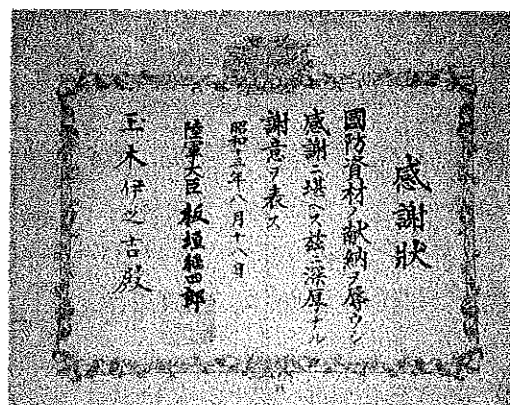 感謝狀
國防資材ノ献納ヲ辱ウシ
感謝ニ堪ヘス玆ニ深厚ナル
謝意ヲ表ス
昭和十三年八月十八日
陸軍大臣 板垣征四郎
玉木伊之吉殿